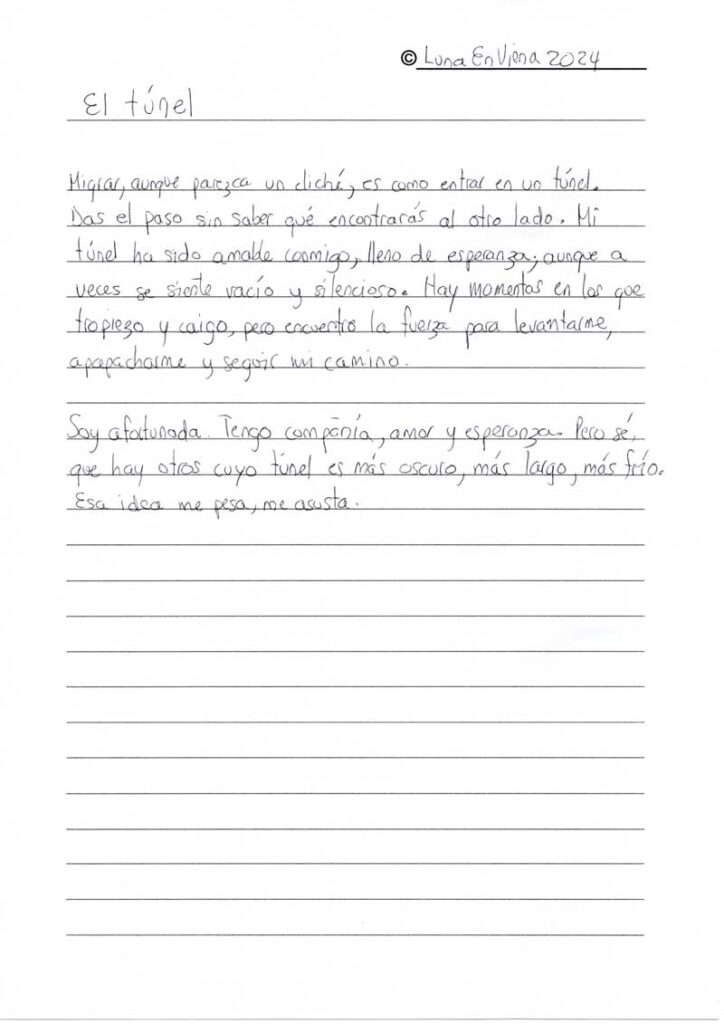 © Luna EnViena 2024
El túnel
Migrar, aunque parezca un cliché, es como entrar en un túnel.
Das el paso sin saber qué encontrarás al otro lado. Mi
túnel ha sido amable conmigo, lleno de esperanza; aunque a
veces se siente vacío y silencioso. Hay momentos en los que
tropiezo y caigo, pero encuentro la fuerza para levantarme,
apapacharme y seguir mi camino.
Soy afortunada. Tengo compañía, amor y esperanza. Pero sé,
que hay otros cuyo túnel es más oscuro, más largo, más frío.
Esa idea me pesa, me asusta.